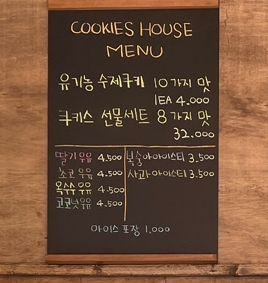 COOKIES HOUSE
MENU
유기농 수제쿠키 10가지 맛
1EA 4.000
쿠키스 선물세트 8가지 맛
32.000
딸기우유 4.500
초코우유 4.500
옥수수우유 4.500
코코넛우유 4.500
복숭아아이스티 3.500
사과아이스티 3.500
아이스 포장 1.000